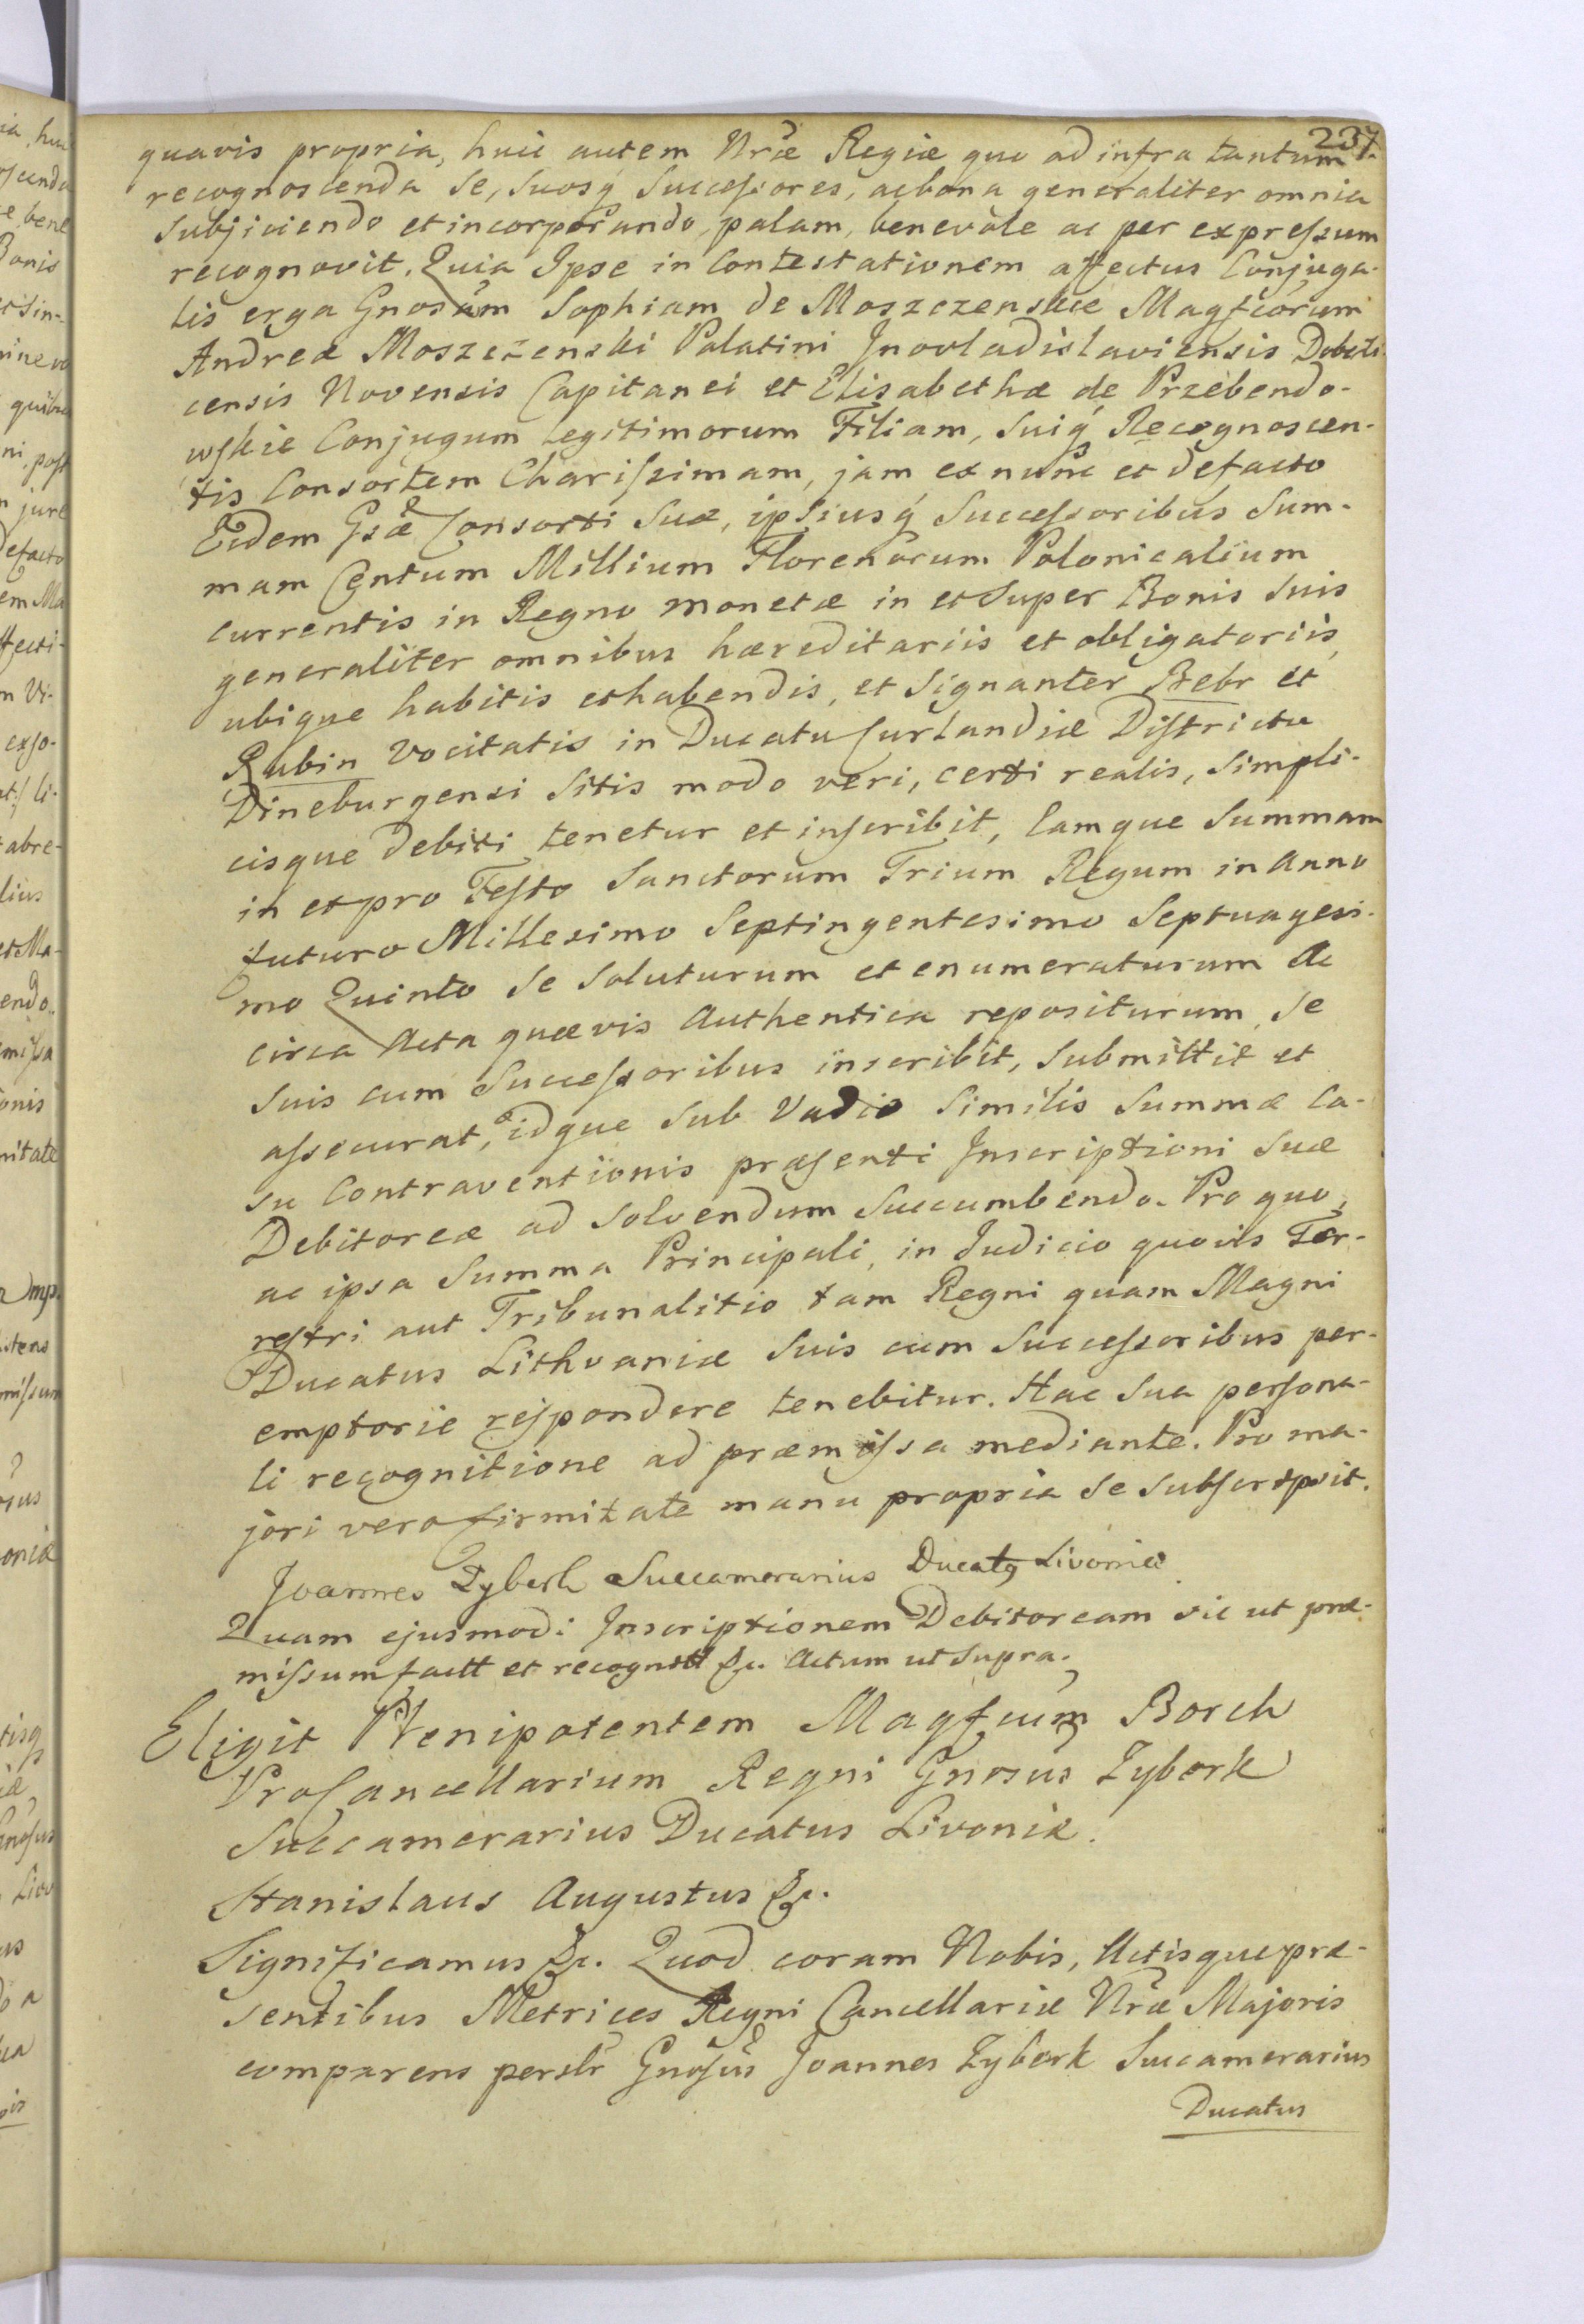 237
quavis propria, huic autem Nr̃æ Regiæ quo ad infra tantum
recognoscenda se, suosq́ Successores, ac bona generaliter omnia
subjiciendo et incorporando, palam, benevole ac per expressum
recognovit. Quia Ipse in Contestationem affectus Conjuga-
lis erga Gnosam Sophiam de Moszczenskie Magfcorum
Andreæ Moszczenski Palatini Inovladislaviensis
censis Novensis Capitanei et Elisabethæ de Przebendo-
wskie Conjugum legitimorum Filiam, suiq́ Recognoscen-
tis Consortem Charissimam, jam ex nunc et defacto
Eidem Gsæ Consorti suæ, ipsiusq́ Successoribus Sum-
mam Centum Millium Florenorum Polonicalium
currentis in Regno monetæ in et super Bonis suis
generaliter omnibus hæreditariis et obligatoriis,
ubique habitis et habendis, et signanter Bebr et
Rubin vocitatis in Ducatu Curlandiæ Districtu
Dineburgensi sitis modo veri, certi realis, simpli-
cisque debiti tenetur et inscribit, Eamque Summam
in et pro Festo Sanctorum Trium Regum in Anno
futuro Millesimo Septingentesimo Septuagesi-
mo Quinto se soluturum et enumeraturum ac
circa Acta quævis Authentica repositurum se
suis cum Successoribus inscribit, submittit et
assecurat, idque sub Vadio similis Summæ Ca-
su Contraventionis præsenti Inscriptioni suæ
Debitoreæ ad solvendum succumbendo. Pro quo,
ac ipsa Summa Principali, in Judicio quovis Ter-
restri aut Tribunalitio tam Regni quam Magni
Ducatus Lithvaniæ suis cum Successoribus per-
emptorie respondere tenebitur. Hac sua persona-
li recognitione ad præmissa mediante. Pro ma-
jori vero firmitate manu propria se subscripsit.
Joannes Zyberk Succamerarius Ducatq Livoniæ
Quam ejusmodi Inscriptionem Debitoream sic ut præ-
missum factt et recognitt &c. Actum ut supra.
Eligit Plenipotentem Magfcum Borch
ProCancellarium Regni Gnosus Zyberk
Succamerarius Ducatus Livoniæ.
Stanislaus Augustus &c.
Significamus &c. Quod coram Nobis, Actisque præ-
sentibus Metrices Regni Cancellariæ Nr̃æ Majoris
comparens perslr Gnosus Joannes Zyberk Succamerarius
Ducatus